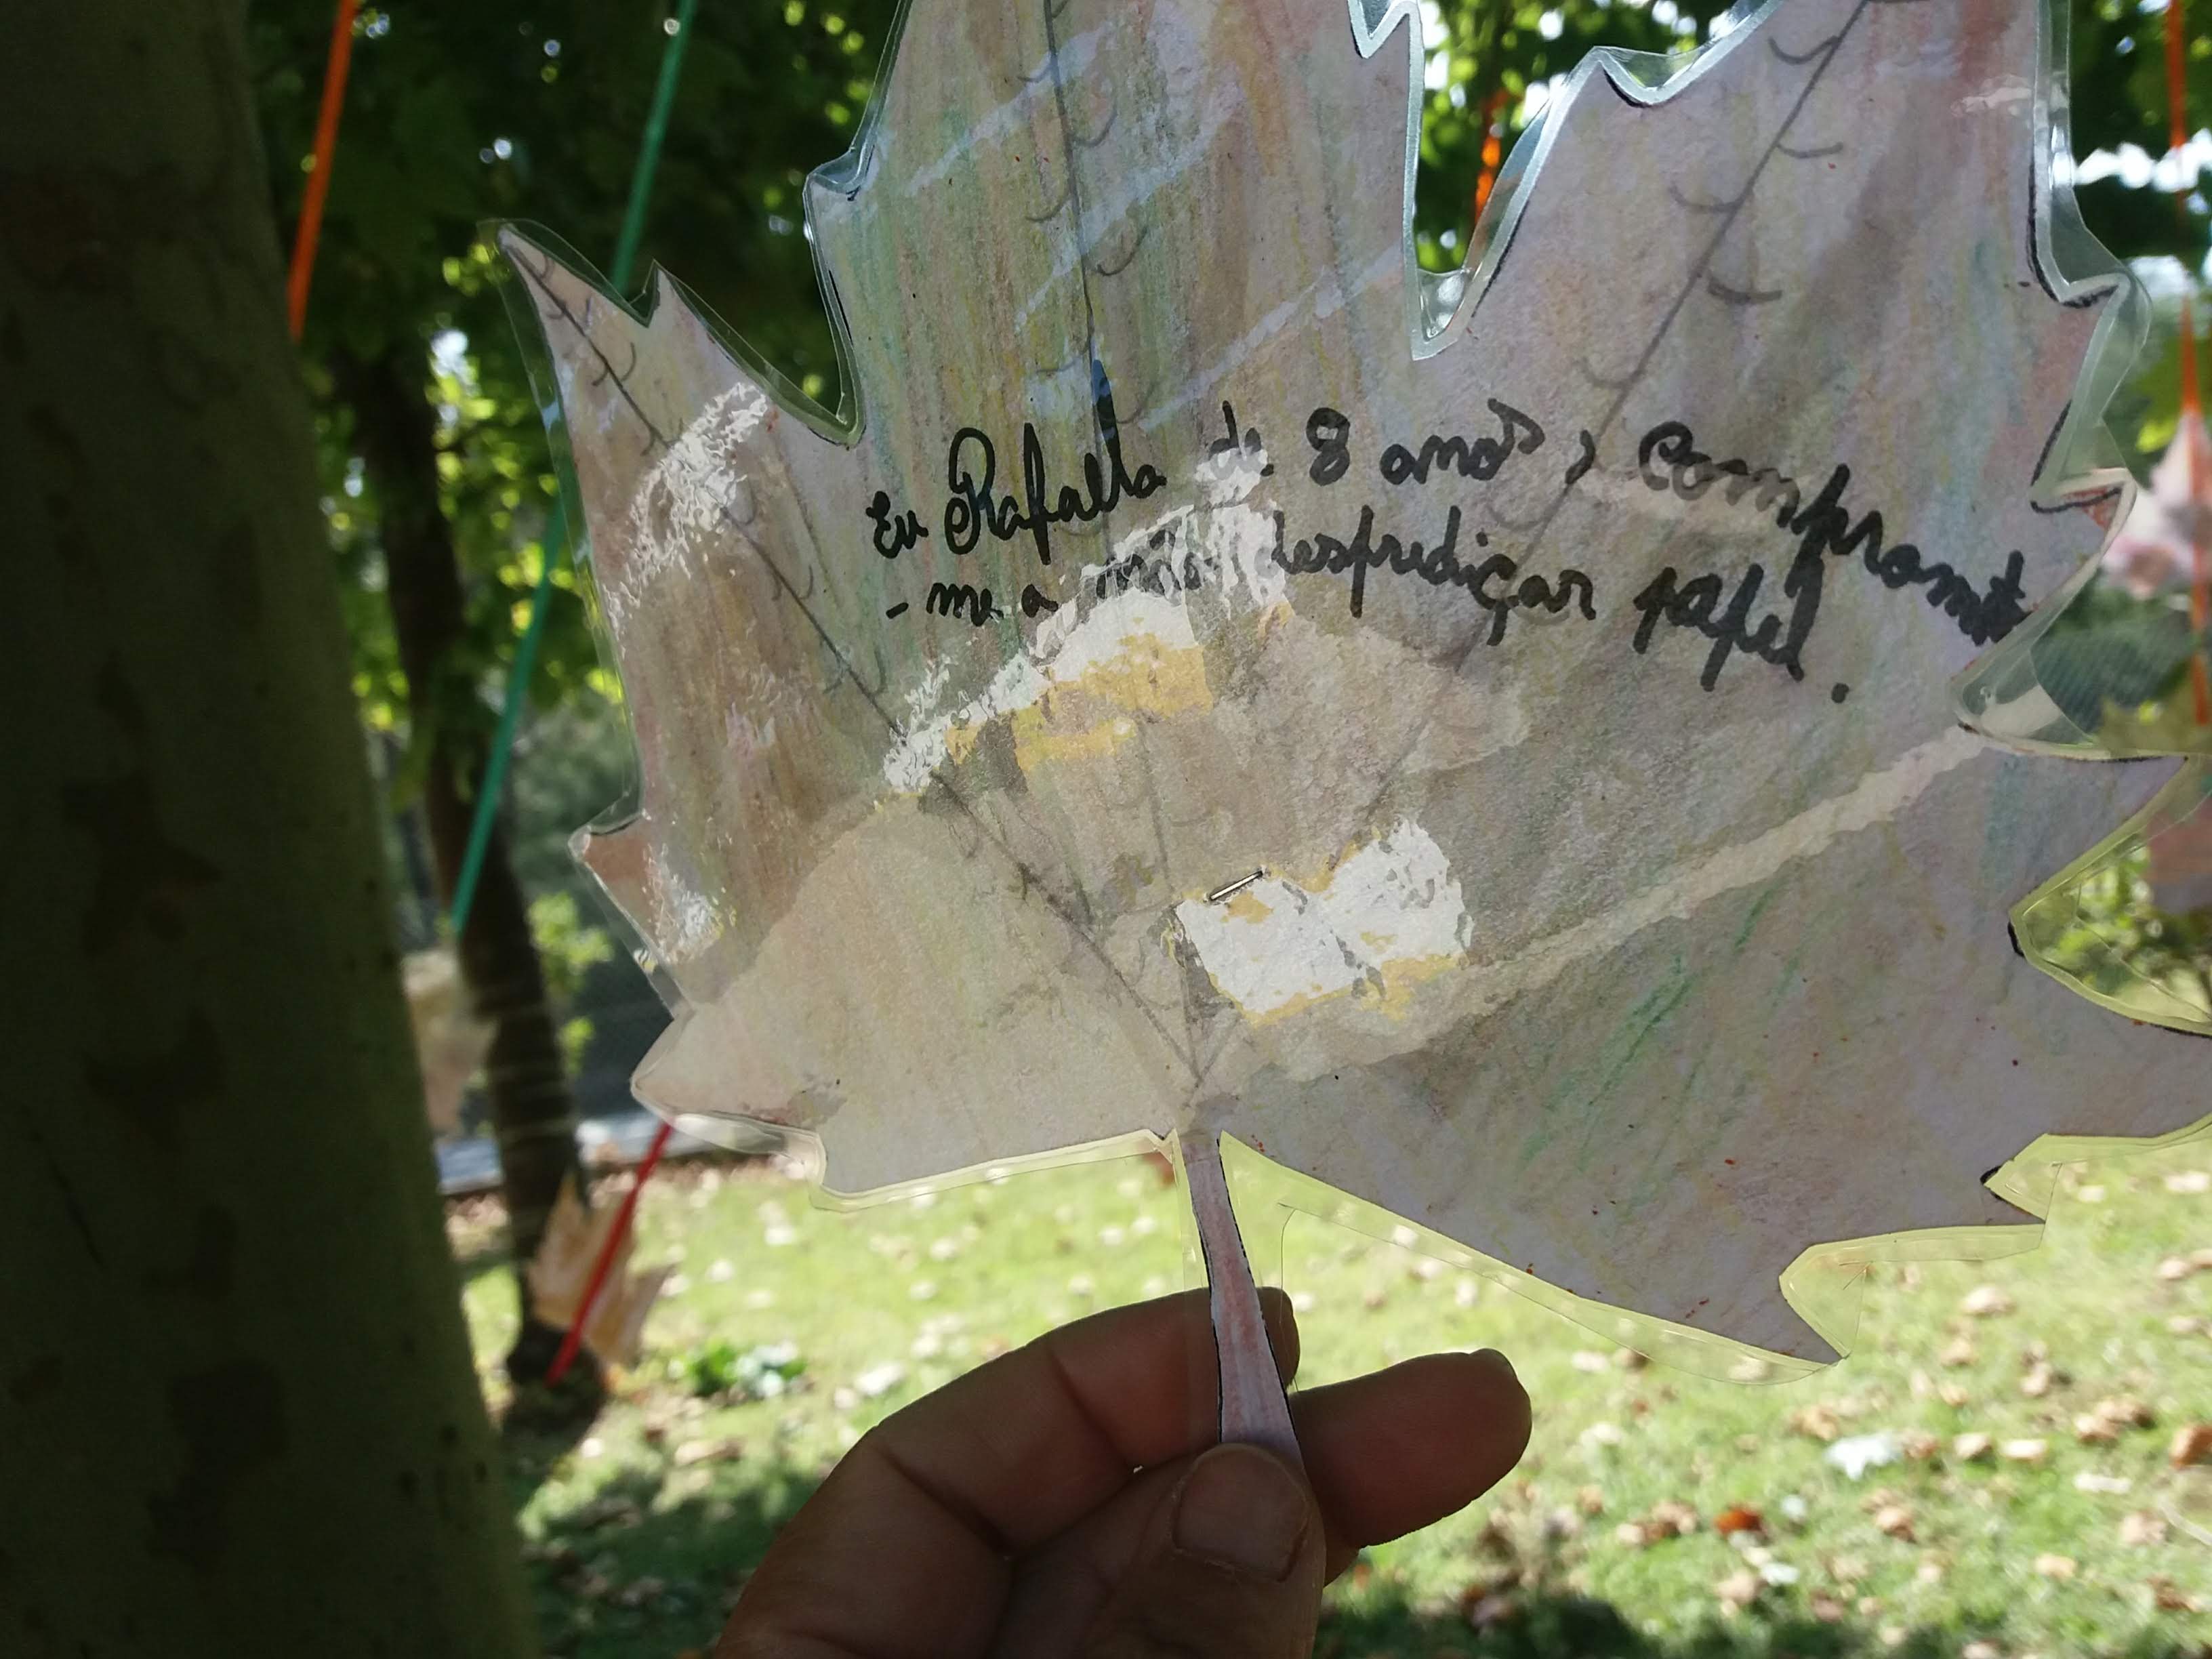 Eu Rafaella de 8 anos, compromet
- me a não desprediçar papel.